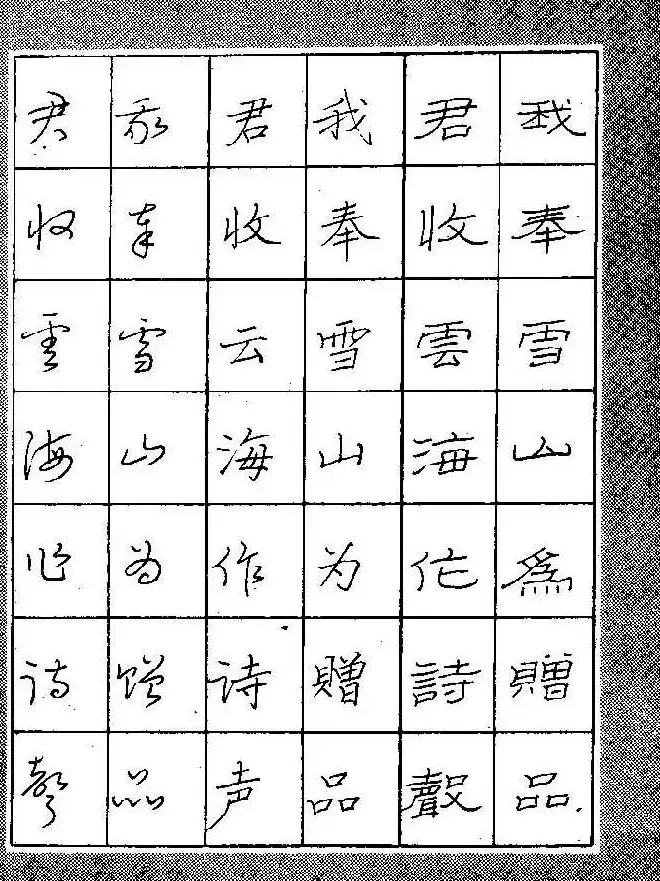 我奉雪山為贈品
君收雲海作詩聲
我奉雪山为贈品
君收云海作诗声
我奉雪山为赠品
君收雲海作诗聲